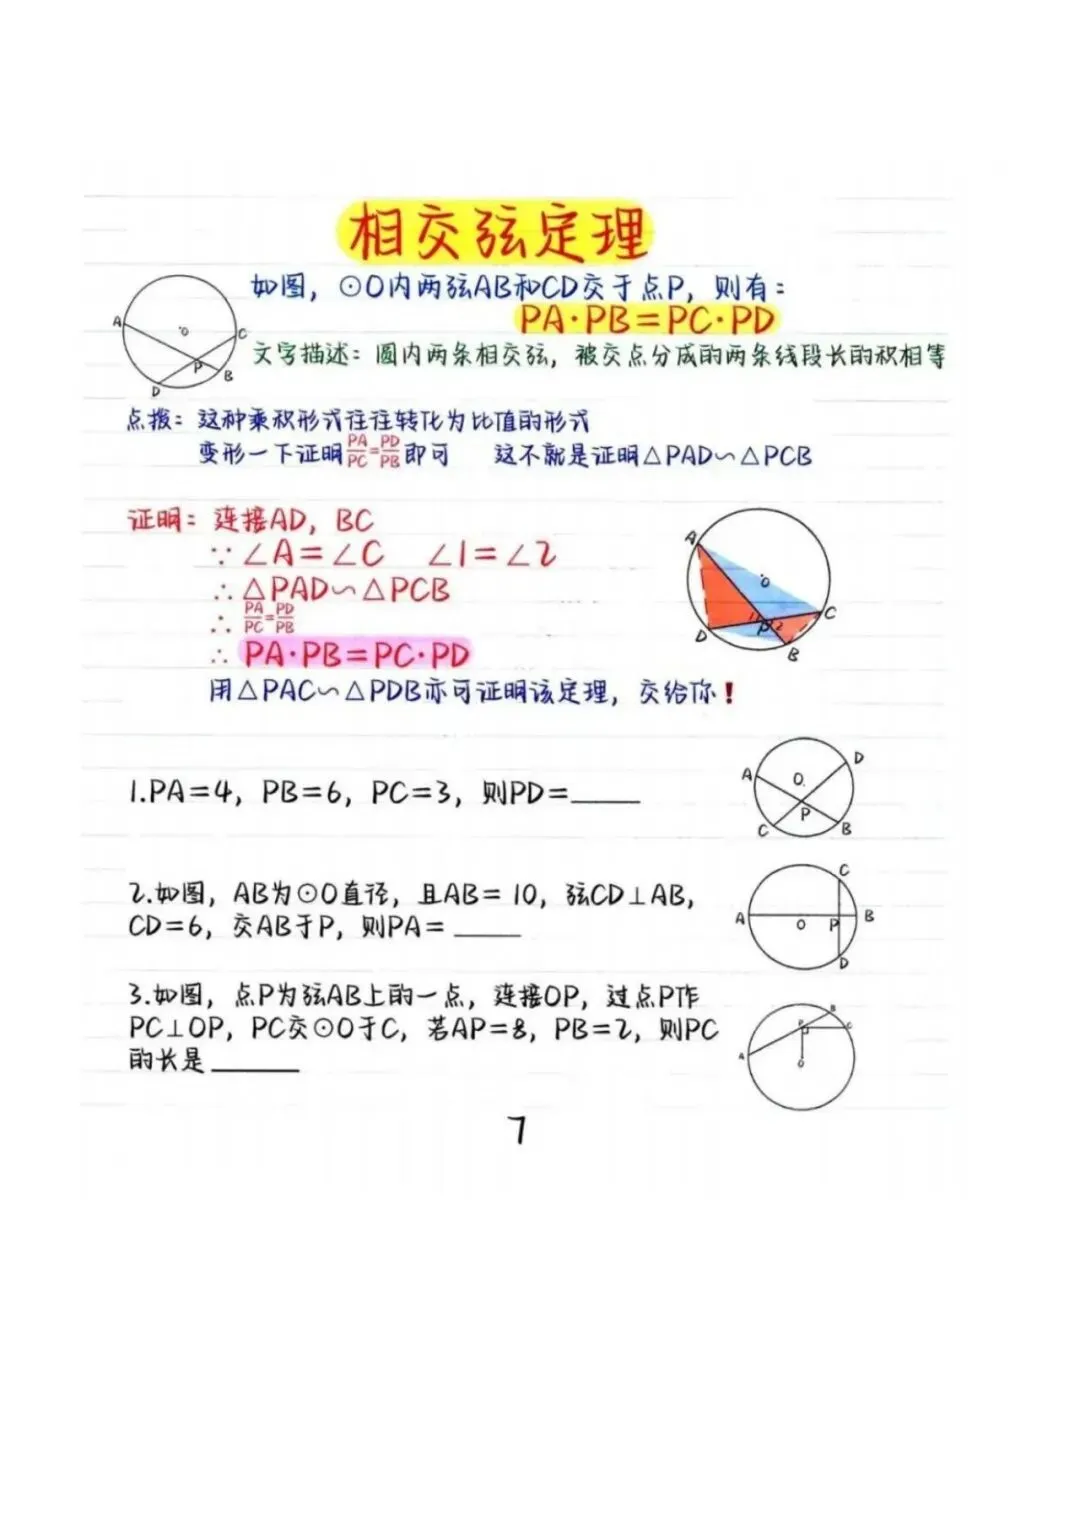 相交弦定理
如图，⊙O内两弦AB和CD交于点P，则有：
PA·PB=PC·PD
文字描述：圆内两条相交弦，被交点分成的两条线段长的积相等
A
O
C
P
B
D
点拨：这种乘积形式往往转化为比值的形式
变形一下证明PA/PC=PD/PB即可 这不就是证明△PAD∽△PCB
证明：连接AD，BC
∵∠A=∠C ∠1=∠2
∴△PAD∽△PCB
∴PA/PC=PD/PB
∴PA·PB=PC·PD
用△PAC∽△PDB亦可证明该定理，交给你！
A
O
C
D
1
P
2
B
1.PA=4，PB=6，PC=3，则PD=____
D
A
O
P
C
B
2.如图，AB为⊙O直径，且AB=10，弦CD⊥AB，
CD=6，交AB于P，则PA=____
C
A
O
P
B
D
3.如图，点P为弦AB上的一点，连接OP，过点P作
PC⊥OP，PC交⊙O于C，若AP=8，PB=2，则PC
的长是____
B
P
C
A
O
7